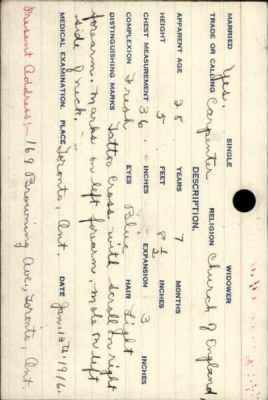 MARRIED Yes. SINGLE WIDOWER
TRADE OR CALLING Carpenter RELIGION Church of England,
DESCRIPTION.
APPARENT AGE 28 YEARS 7 MONTHS
HEIGHT 5 FEET 8 1/2 INCHES
CHEST MEASUREMENT 36 INCHES EXPANSION 3 INCHES
COMPLEXION Fresh EYES Blue HAIR Light
DISTINGUISHING MARKS Tattoo Cross with scroll on right
forearm. Marks on left forearm, mole on left
side neck.
MEDICAL EXAMINATION PLACE Toronto, Ont. DATE Jan. 13th, 1916.
Present Address:- 169 Browning Ave., Toronto, Ont.